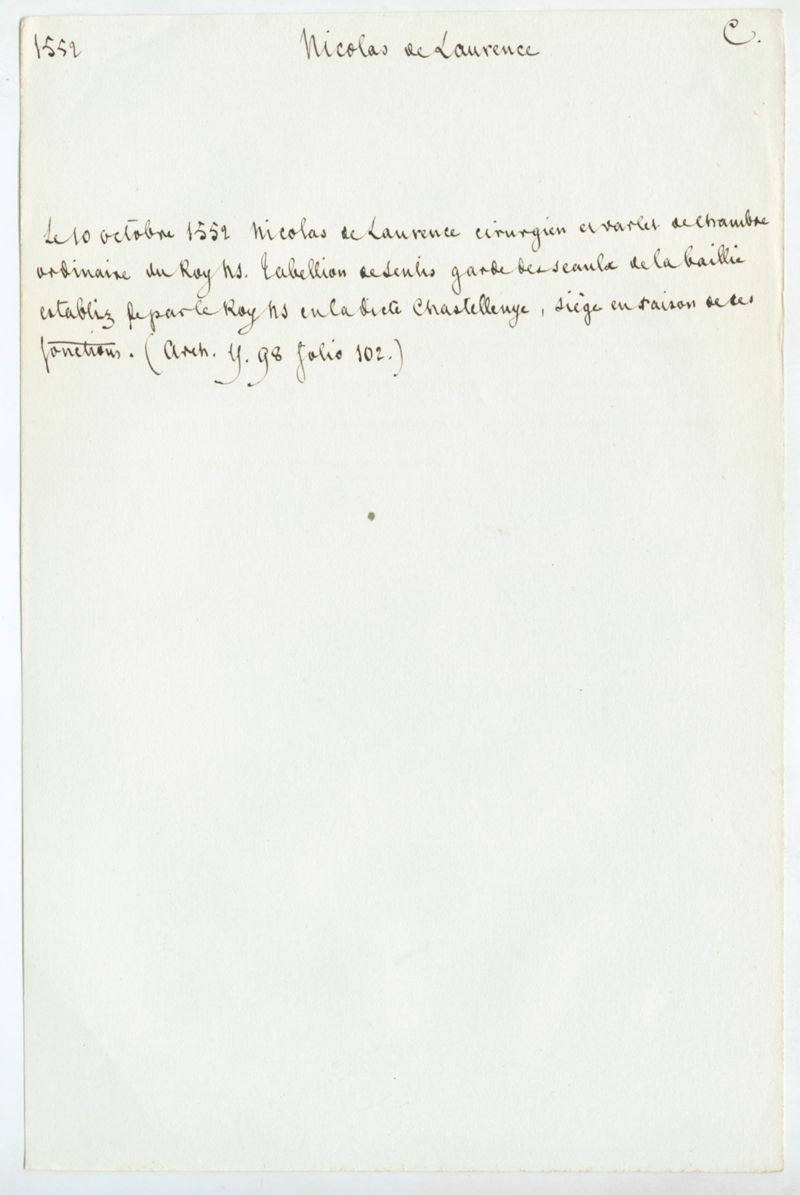 1552 Nicolas de Laurence C.
Le 10 octobre 1552 Nicolas de Laurence cirurgien et varlet de chambre
ordinaire du Roy Ns. Tabellion de Senlis garde des seaulx de la baillie
establiz de par le Roy Ns en la dicte Chastellenye, siège en raison de ses
fonctions. (Arch. Y. 98 folio 102.)